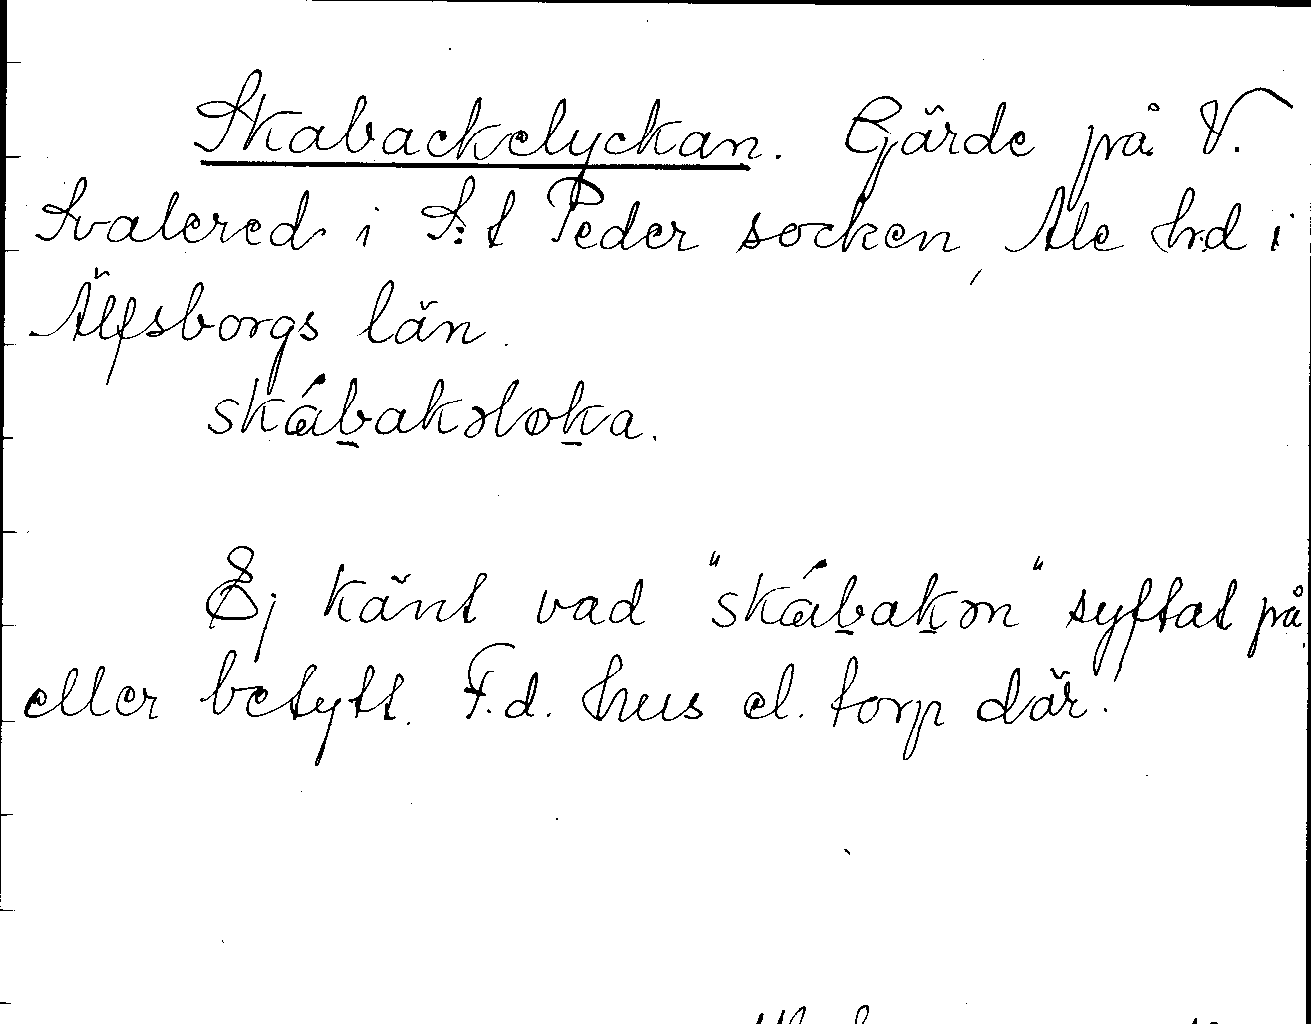 Skabackelyckan. Gärde på V.
Svalered i S:t Peder socken, Ale hd i
Älfsborgs län.
skábakəløka.
Ej känt vad "skábakən" syftat på
eller betytt. F.d. hus el. torp där.